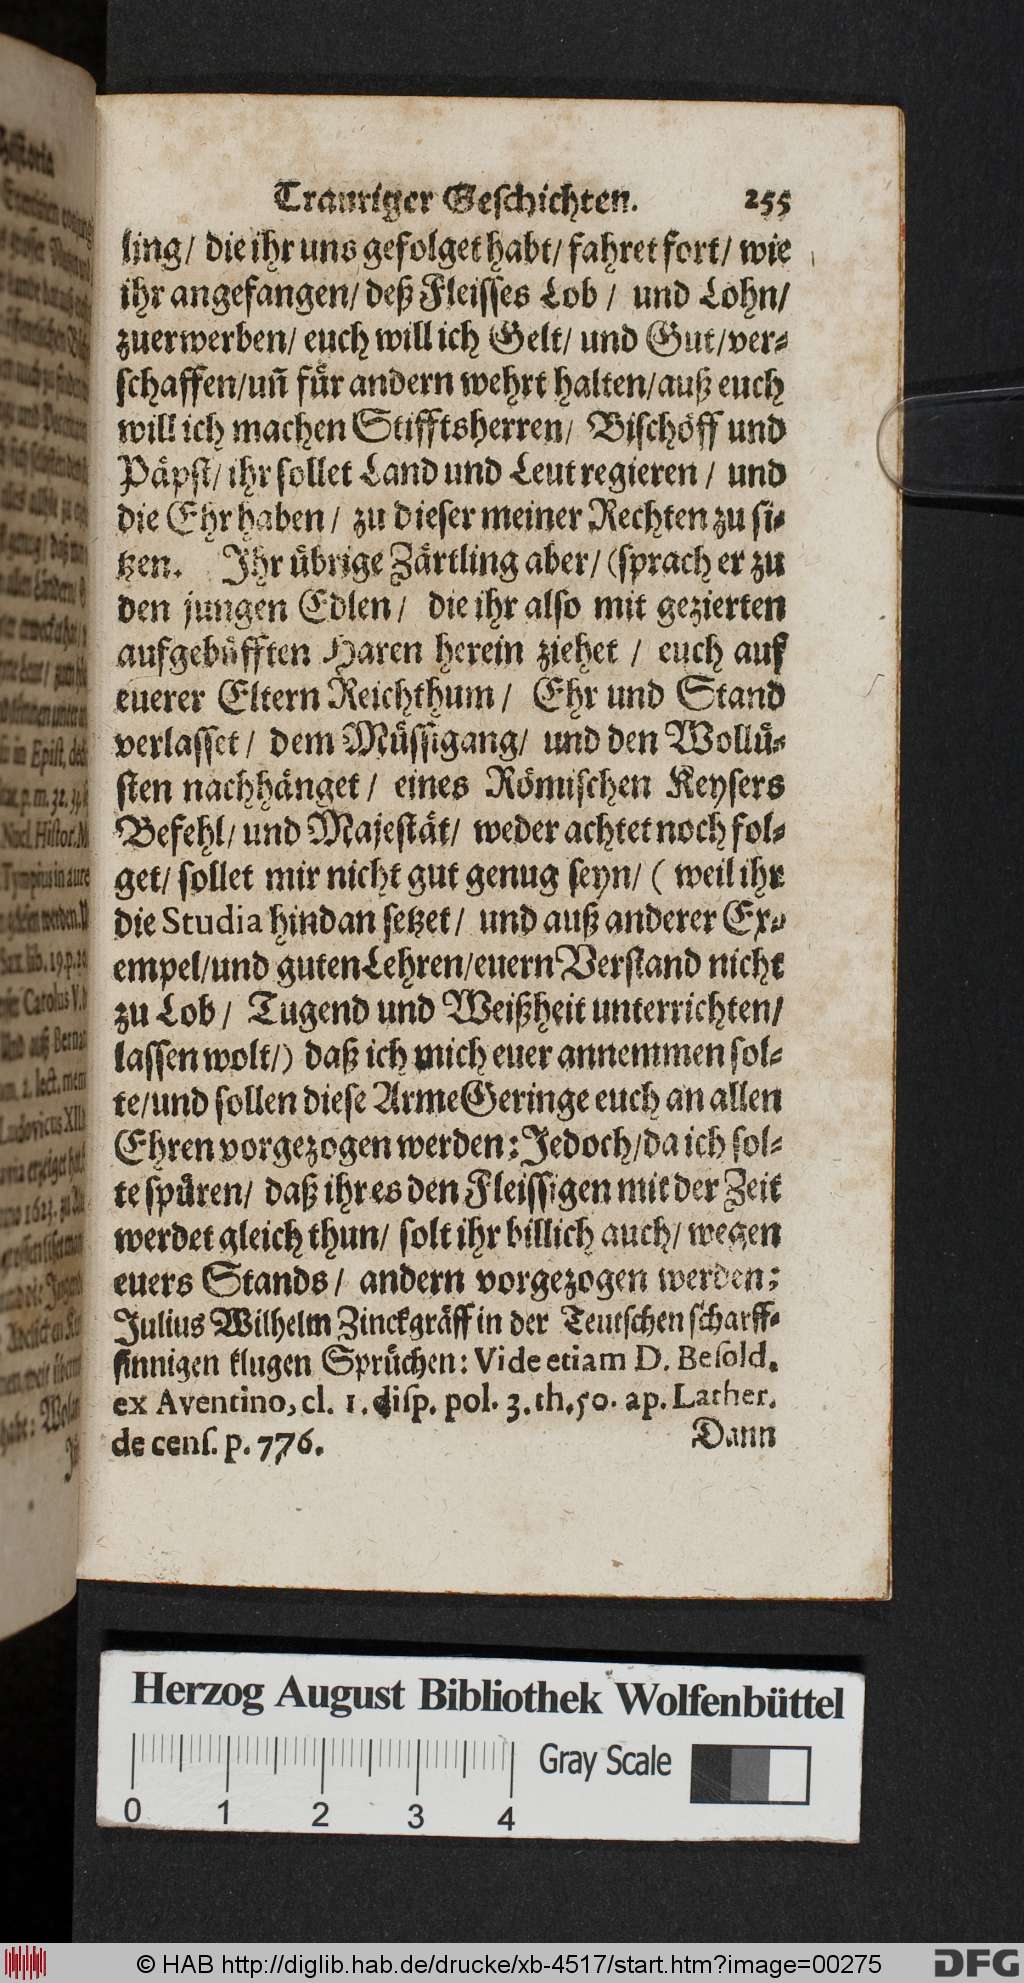 Trauriger Geschichten. 255
ling/ die ihr uns gefolget habt/ fahret fort/ wie
ihr angefangen/ deß Fleisses Lob / und Lohn/
zuerwerben/ euch will ich Gelt/ und Gut/ ver-
schaffen/ uñ fuͤr andern wehrt halten/ auß euch
will ich machen Stifftsherren/ Bischoͤff und
Paͤpst/ ihr sollet Land und Leut regieren / und
die Ehr haben / zu dieser meiner Rechten zu si-
tzen. Ihr uͤbrige Zaͤrtling aber/ (sprach er zu
den jungen Edlen / die ihr also mit gezierten
aufgebuͤfften Haren herein ziehet / euch auf
euerer Eltern Reichthum / Ehr und Stand
verlasset / dem Muͤssigang/ und den Wolluͤ-
sten nachhaͤnget / eines Roͤmischen Keysers
Befehl/ und Majestaͤt/ weder achtet noch fol-
get/ sollet mir nicht gut genug seyn/ ( weil ihr
die Studia hindan setzet / und auß anderer Ex-
empel/ und guten Lehren/ euern Verstand nicht
zu Lob / Tugend und Weißheit unterrichten/
lassen wolt/) daß ich mich euer annemmen sol-
te/ und sollen diese Arme Geringe euch an allen
Ehren vorgezogen werden: Jedoch/ da ich sol-
te spuͤren/ daß ihr es den Fleissigen mit der Zeit
werdet gleich thun/ solt ihr billich auch/ wegen
euers Stands / andern vorgezogen werden:
Julius Wilhelm Zinckgraͤff in der Teutschen scharff-
sinnigen klugen Spruͤchen: Vide etiam D. Besold.
ex Aventino, cl. 1. disp. pol. 3. th. 50. ap. Lather.
de cens. p. 776.
Dann
Herzog August Bibliothek Wolfenbüttel
0 1 2 3 4 Gray Scale
© HAB http://diglib.hab.de/drucke/xb-4517/start.htm?image=00275 DFG